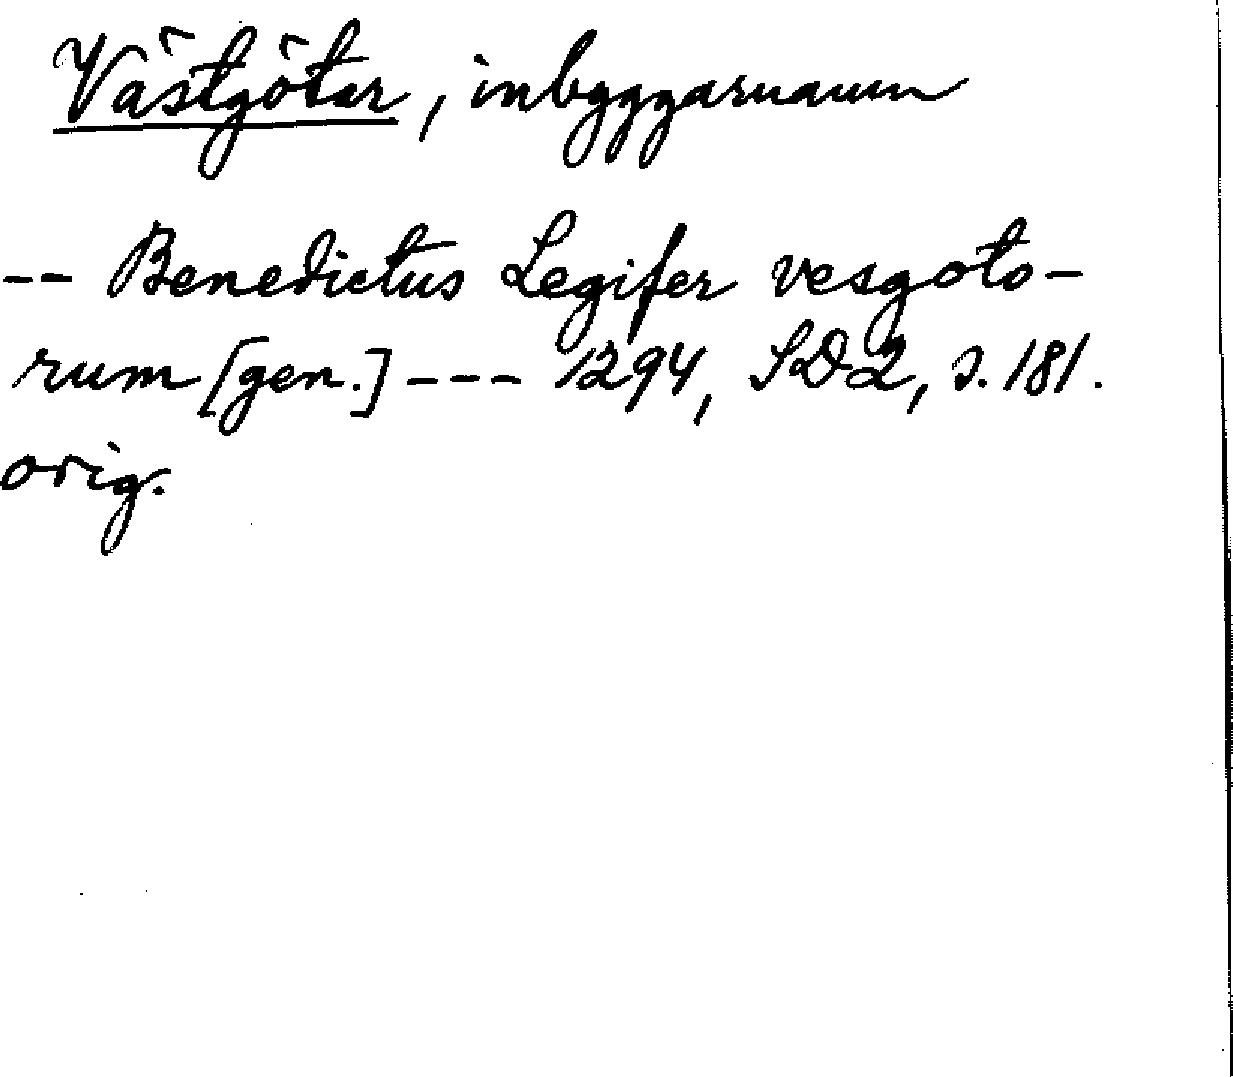 Västgötar, inbyggarnamn
-- Benedictus Legifer vesgoto-
rum [gen.] --- 1294, SD 2, s. 181.
orig.